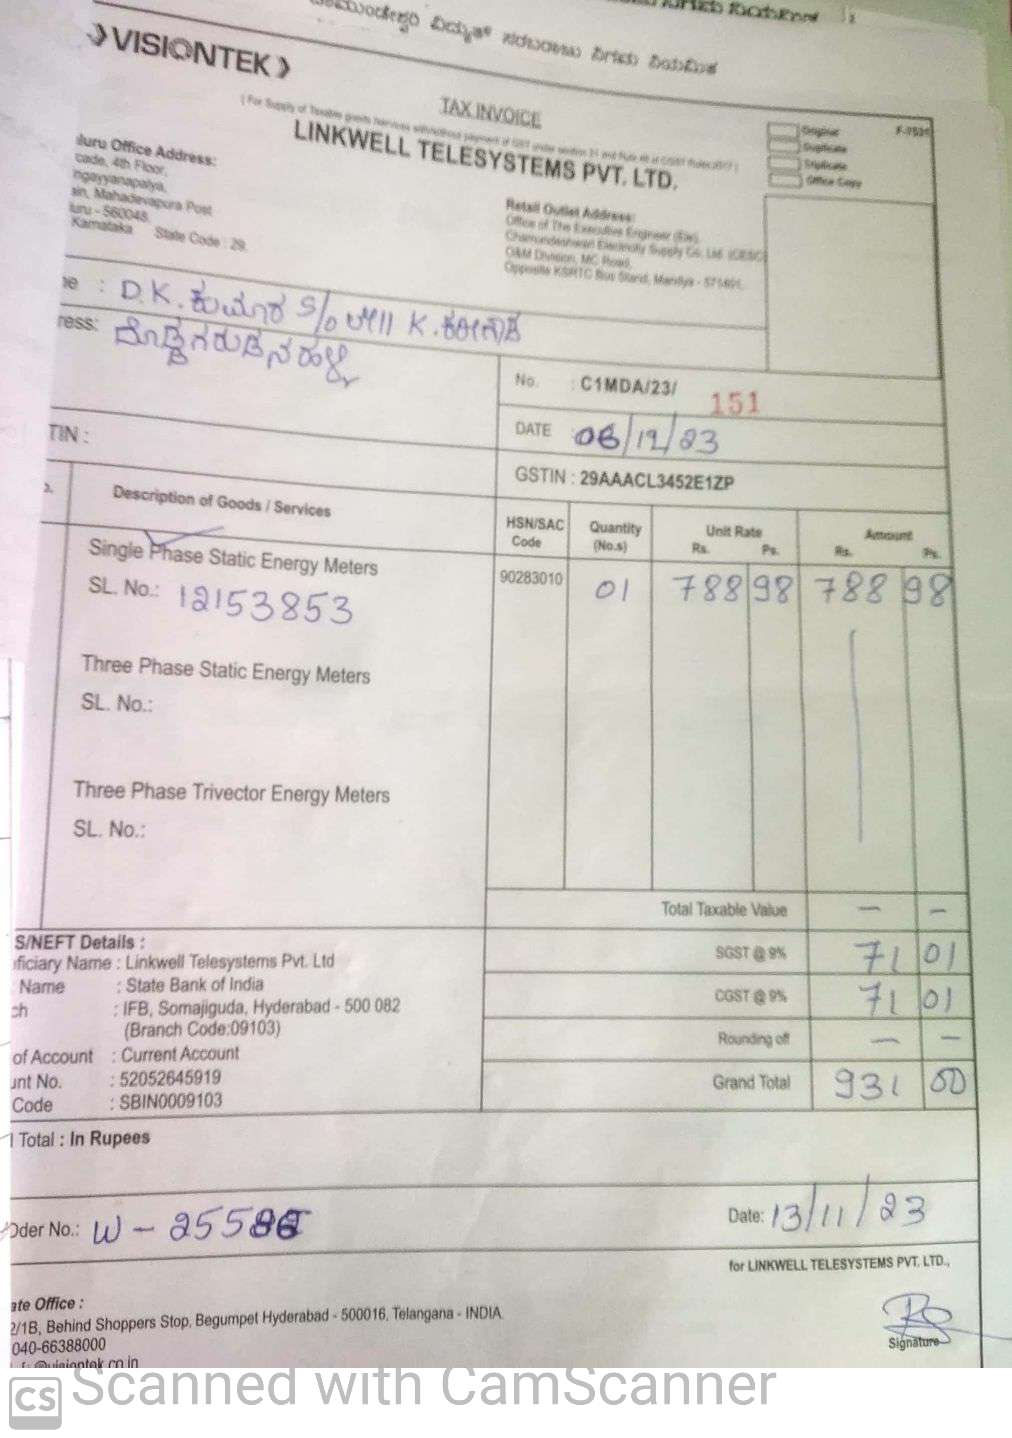 VISIONTEK
TAX INVOICE
( For Supply of Taxable goods /services with/without payment of GST under section 31 and Rule 46 of CGST Rules 2017 )
LINKWELL TELESYSTEMS PVT. LTD.
Original
Duplicate
Triplicate
Office Copy
luru Office Address:
cade, 4th Floor,
ngayyanapalya,
in, Mahadevapura Post
luru - 560048.
Karnataka State Code : 29.
Retail Outlet Address:
Office of The Executive Engineer (Ele),
Chamundeshwari Electricity Supply Co. Ltd. (CESC)
O&M Division, MC Road,
Opposite KSRTC Bus Stand, Mandya - 571401.
ne : D.K. ಕುಮಾರ S/o ಲೇ|| K.
ress: ದೊಡ್ಡಗರುಡನಹಳ್ಳಿ
No. : C1MDA/23/ 151
DATE : 06/12/23
TIN :
GSTIN : 29AAACL3452E1ZP
o. Description of Goods / Services HSN/SAC Code Quantity (No.s) Unit Rate Rs. Ps. Amount Rs. Ps.
Single Phase Static Energy Meters 90283010 01 788 98 788 98
SL. No.: 12153853
Three Phase Static Energy Meters
SL. No.:
Three Phase Trivector Energy Meters
SL. No.:
Total Taxable Value — —
S/NEFT Details :
ficiary Name : Linkwell Telesystems Pvt. Ltd
SGST @ 9% 71 01
Name : State Bank of India
ch : IFB, Somajiguda, Hyderabad - 500 082
CGST @ 9% 71 01
(Branch Code:09103)
Rounding off — —
of Account : Current Account
unt No. : 52052645919
Grand Total 931 00
Code : SBIN0009103
l Total : In Rupees
Oder No.: W - 2558
Date: 13/11/23
for LINKWELL TELESYSTEMS PVT. LTD.,
ate Office :
2/1B, Behind Shoppers Stop, Begumpet Hyderabad - 500016, Telangana - INDIA
040-66388000
@visiontek.co.in
Signature
CS Scanned with CamScanner